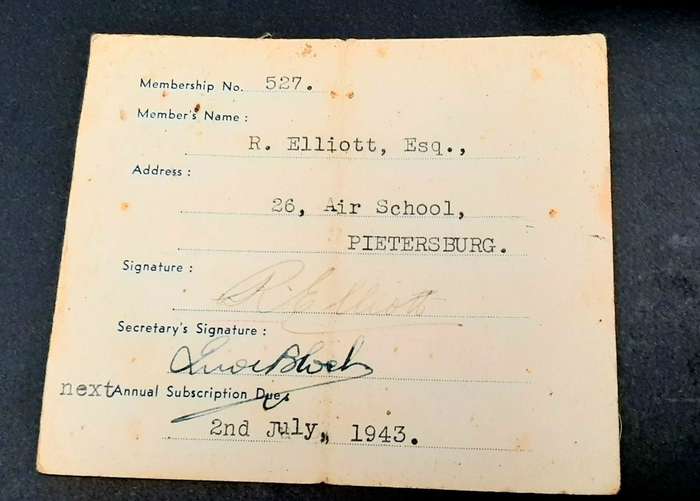 Membership No. 527.
Member's Name :
R. Elliott, Esq.,
Address :
26, Air School,
PIETERSBURG.
Signature :
R. Elliott
Secretary's Signature :
next Annual Subscription Due:
2nd July, 1943.